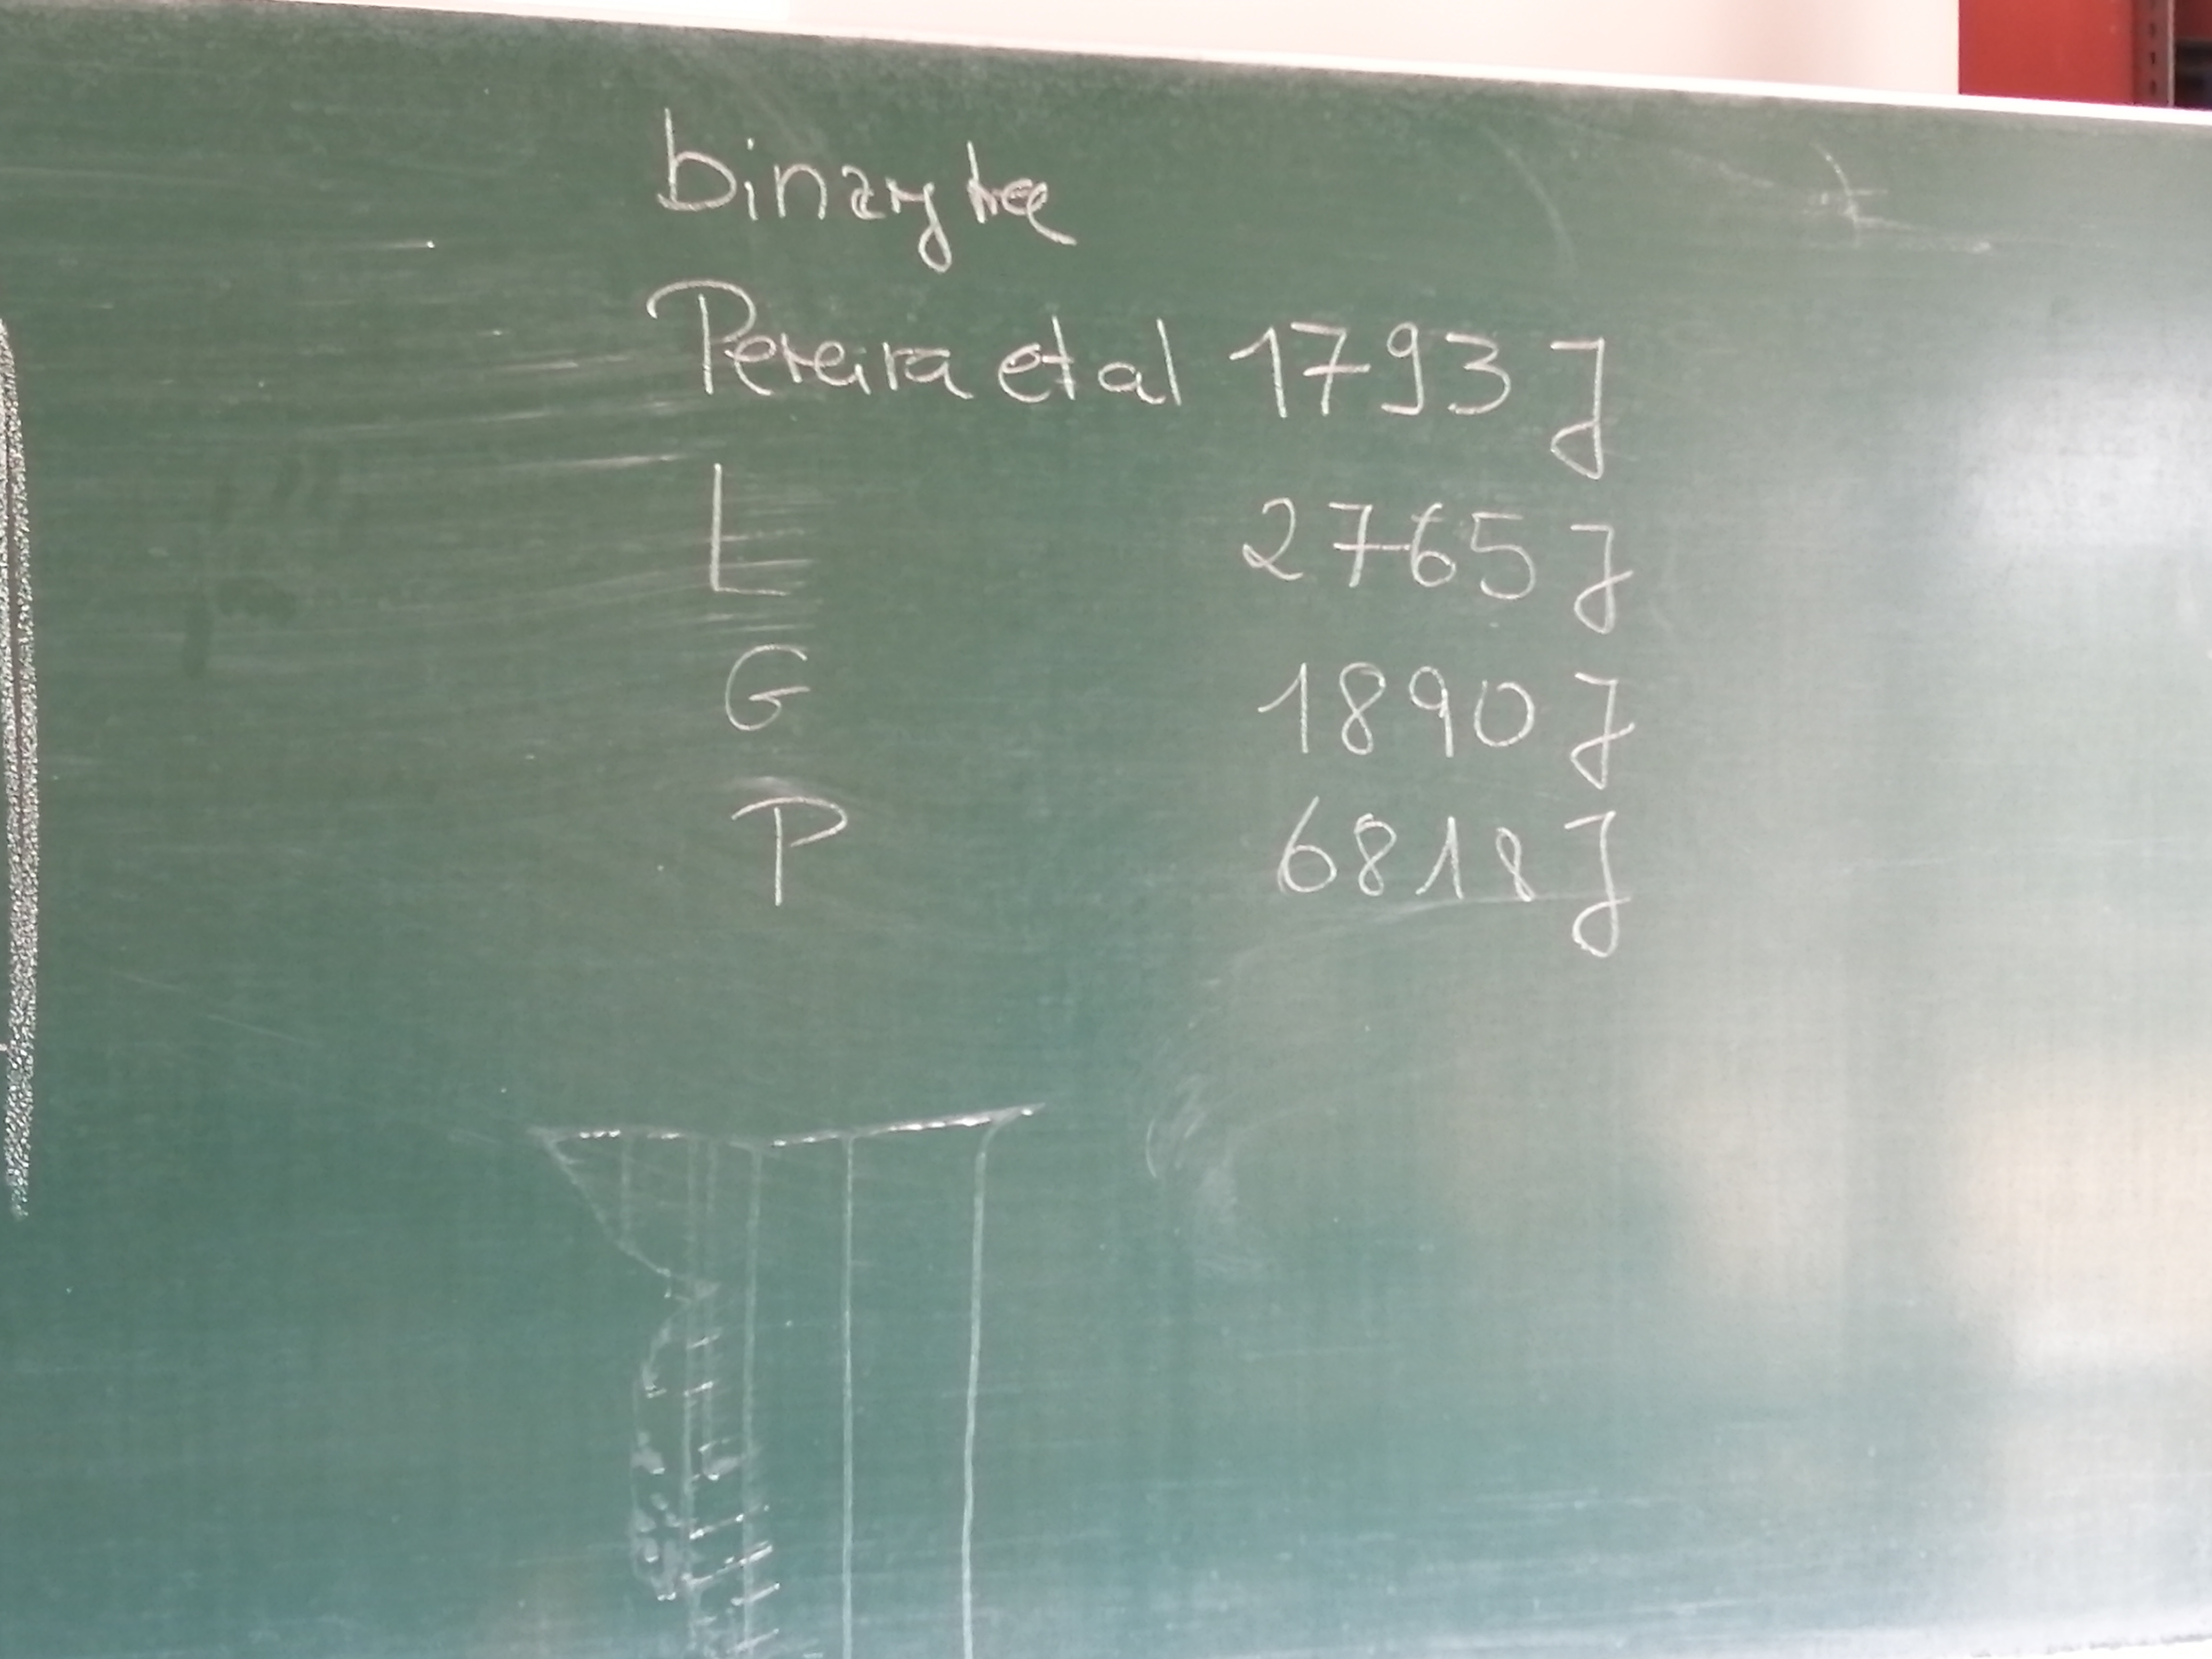 binary tree
Pereira et al 1793 J
L 2765 J
G 1890 J
P 6818 J